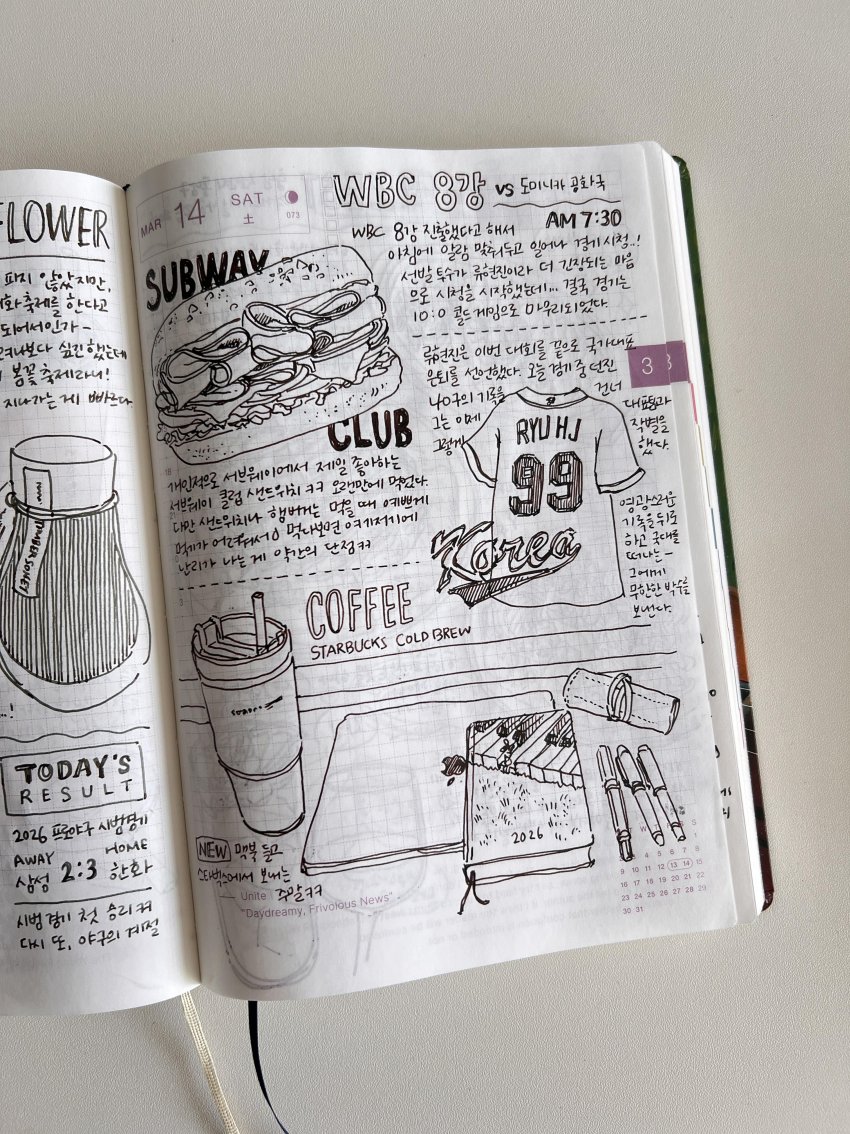 FLOWER
파지 않았지만,
화축제를 한다고
되어서인가 -
보다 심진했는데
봄꽃축제라니!
지나가는 게 빠르다.
TODAY'S
RESULT
2026 프로야구 시범경기
AWAY HOME
삼성 2:3 한화
시범경기 첫 승리 ㅋㅋ
다시 또, 야구의 계절
MAR 14 SAT
土 073
WBC 8강 vs 도미니카 공화국
AM 7:30
WBC 8강 진출했다고 해서
아침에 알람 맞춰두고 일어나 경기시청..!
선발투수가 류현진이라 더 긴장되는 마음
으로 시청을 시작했는데... 결국 경기는
10:0 콜드게임으로 마무리되었다.
SUBWAY
CLUB
개인적으로 서브웨이에서 제일 좋아하는
서브웨이 클럽 샌드위치 ㅋㅋ 오랜만에 먹었다.
다만 샌드위치나 햄버거는 먹을 때 예쁘게
먹기가 어려워서;) 먹다보면 여기저기에
난리가 나는 게 약간의 단점 ㅋㅋ
류현진은 이번 대회를 끝으로 국가대표
은퇴를 선언했다. 오늘 경기 중 던진
나0구의 기록을 건너
그는 이제 대표팀과
그렇게 작별을
했다.
3
RYU HJ
99
Korea
영광스러운
기록을 뒤로
하고 국대를
떠나는 -
그에게
무한한 박수를
보낸다.
COFFEE
STARBUCKS COLD BREW
2026
NEW 맥북 들고
스타벅스에서 보내는
주말 ㅋㅋ
Unite
"Daydreamy, Frivolous News"
W S
1
4 5 6 7 8
9 10 11 12 13 14 15
16 17 18 19 20 21 22
23 24 25 26 27 28 29
30 31